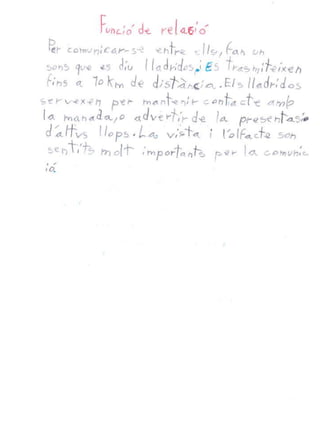 Funció de relació
Per comunicar-se entre ells, fan un
sons que es diu lladridos i Es trasmiteixen
fins a 70km de distància. Els lladridos
servexen per mantenir contacte amb
la manada, o advertir de la presentasio
d'altus llops. La vista i l'olfacte son
sentits molt importants per la comunic
iá